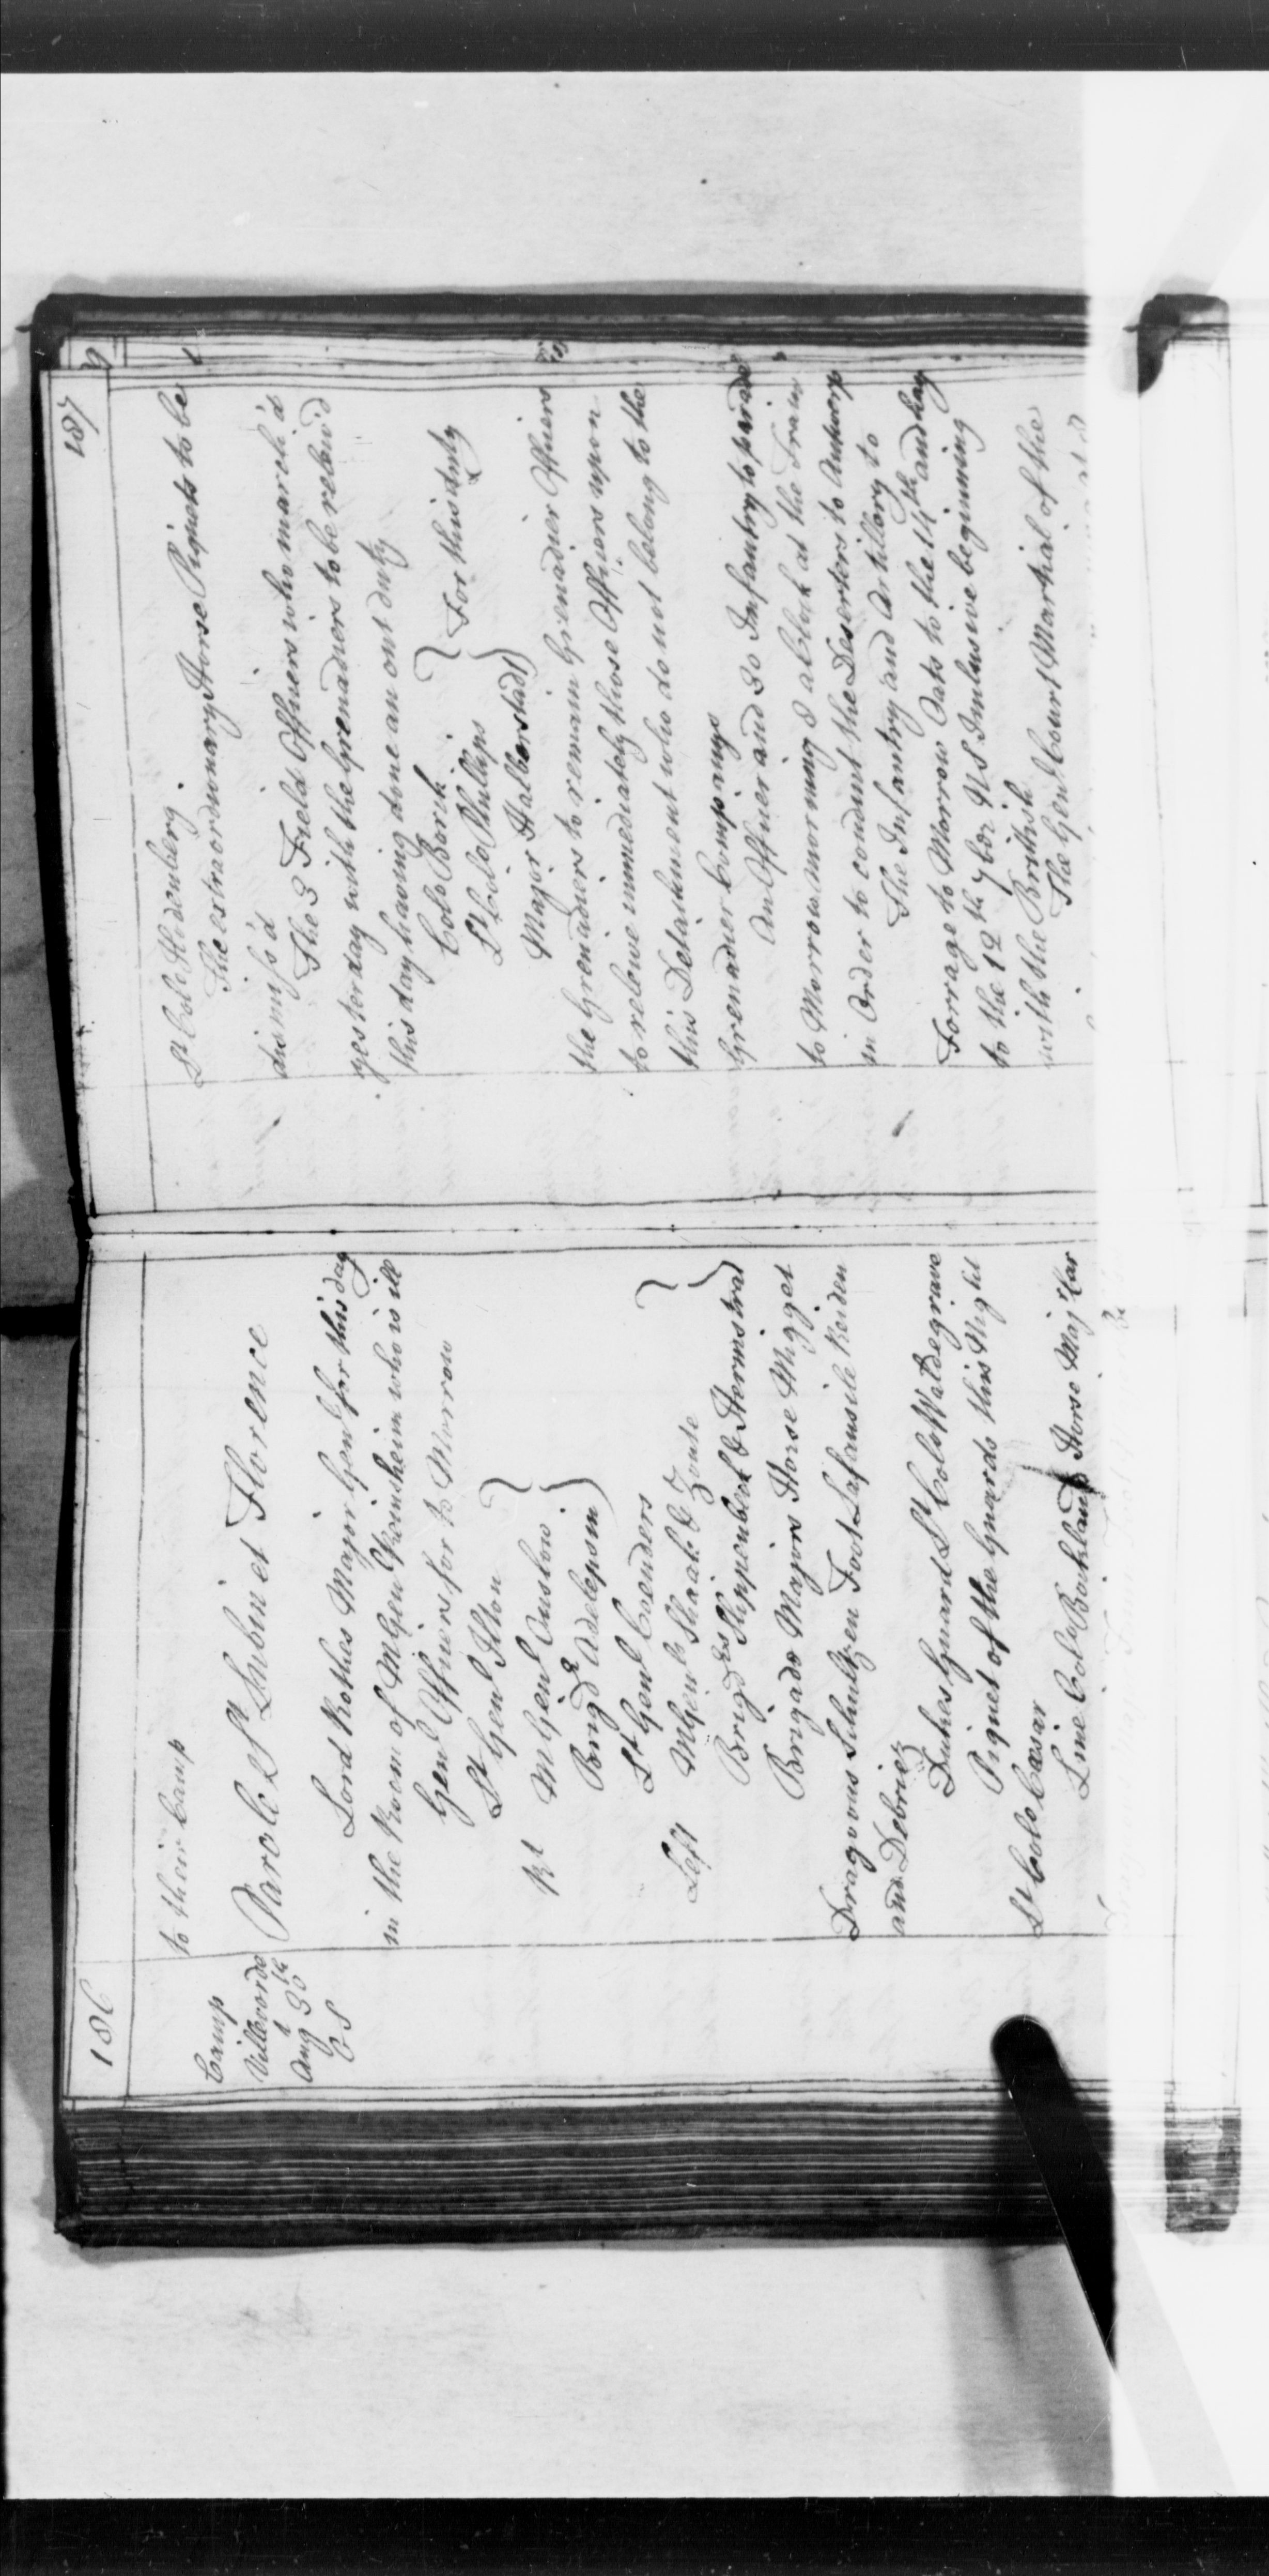 186
to their Camp
Camp
Villvorde
Augt 30th
Parole St Lubin et Florence
Lord Rothes Major Genl for this day
in the Room of MGen who is ill
Genl Officers for to Morrow
Lt Genl Ilton
Rt MGenl Onslow
Brigdr Adelepsin
Lt Genl Coenders
Left MGenls & Zoute
Brigdrs &
Brigade Majors Horse Migget
Dragoons Schultzen Foot Lafausile Reiden
and Debriez
Dukes Guard Lt Colo Waldegrave
Piquet of the Guards this Night
Lt Colo Cæsar
Line Colo Horse Majr
187
Lt Colo Hedenberg.
The estraordinary Horse Piquets to be
dismiss'd
The 3 Field Officers who march'd
yesterday with the Grenadiers to be reliev'd
this day having done an out duty
Colo
Lt Colo Phillips For this duty
Major Halberstadt
Major Grenadier Officers
the Grenadiers to remain
to releive immediately those Officers upon
this Detachment who do not belong to the
Grenadier Companys
An Officer and 30 Infantry to parade
to Morrow morning 8 a Clock at the Train
in Order to conduct the Deserters to Antwerp
The Infantry and Artillary to
Forrage to Morrow Oats to the 14th and hay
to the 12th 7ber NS Inclusive beginning
with the British
The Genl Court Martial of the